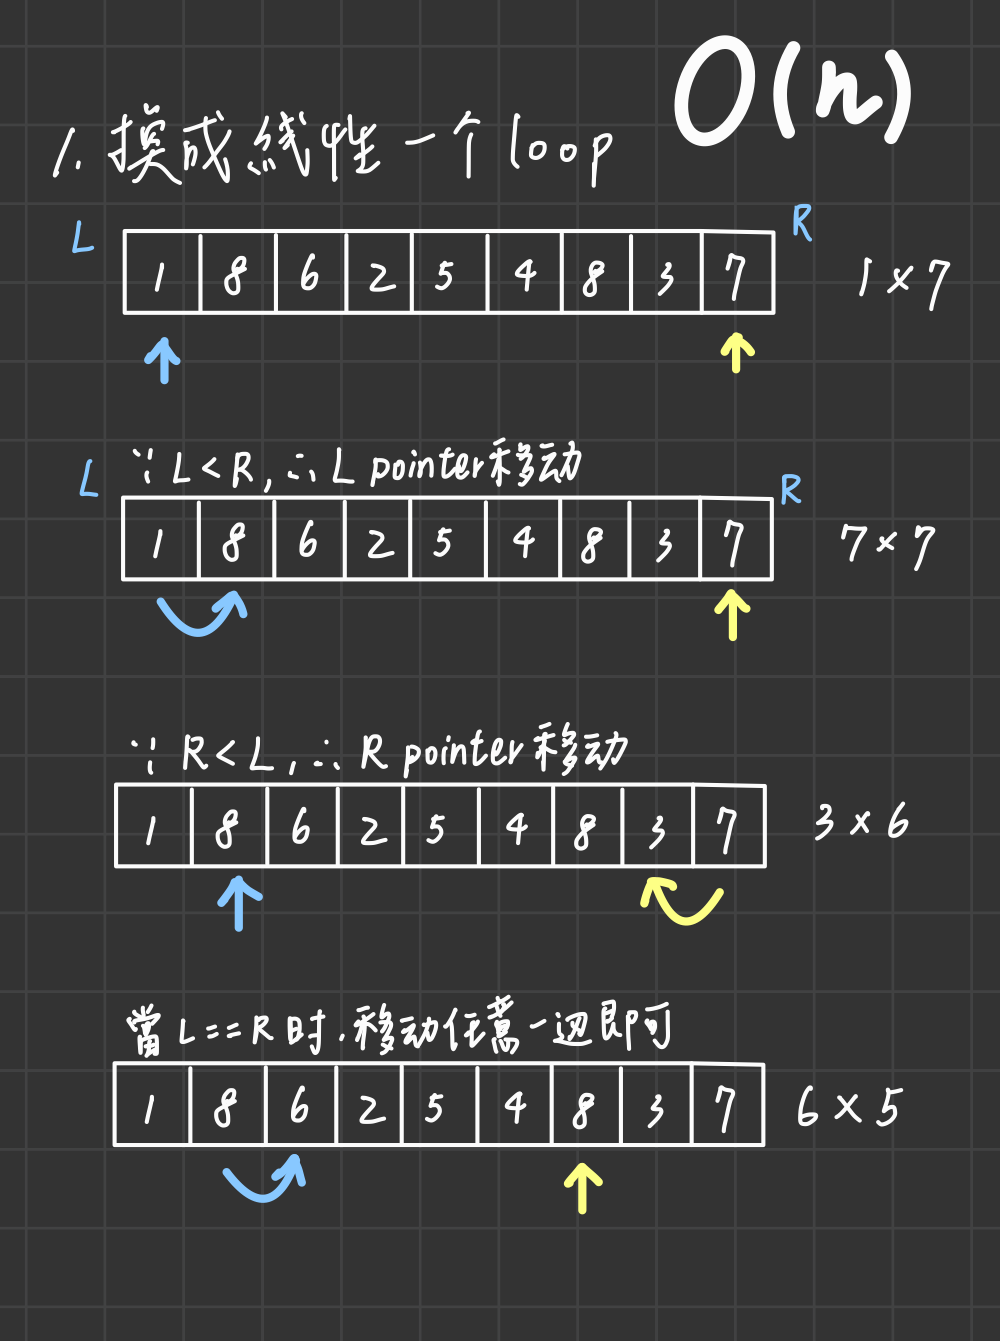 O(n)
1. 換成線性一个 loop
L R
1 8 6 2 5 4 8 3 7 1 × 7
∵ L < R, ∴ L pointer 移动
L R
1 8 6 2 5 4 8 3 7 7 × 7
∵ R < L, ∴ R pointer 移动
1 8 6 2 5 4 8 3 7 3 × 6
當 L == R 时, 移动任意一边即可
1 8 6 2 5 4 8 3 7 6 × 5